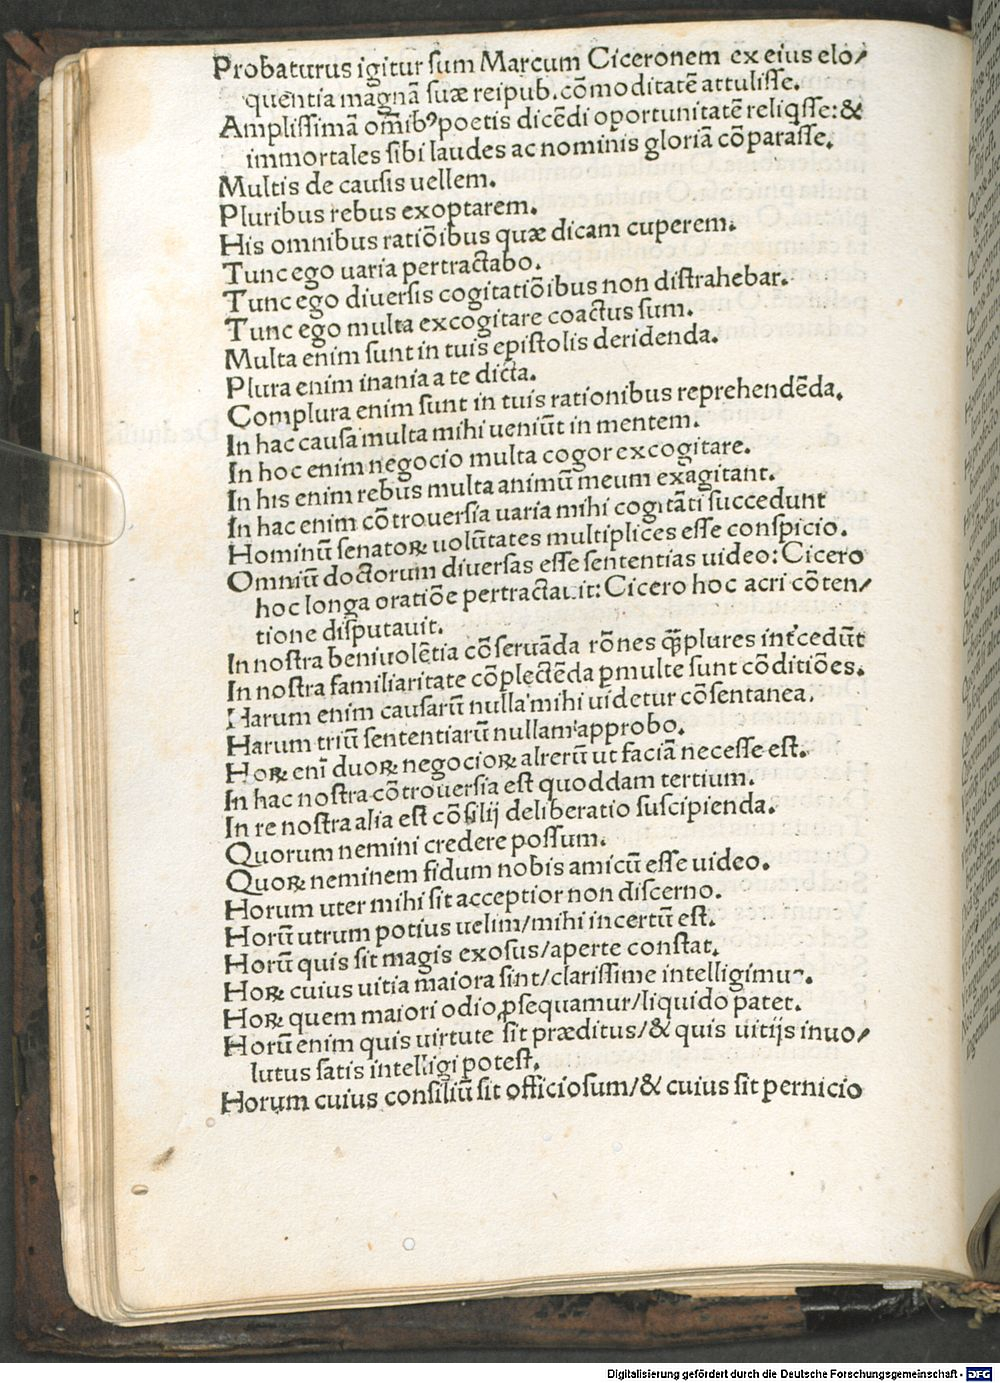 Probaturus igitur ſum Marcum Ciceronem ex eius elo/
quentia magnã ſuæ reipub. cõmoditatẽ attuliſſe.
Ampliſſimã om̃ibꝰ poetis dicẽdi oportunitatẽ reliqſſe: &
immortales ſibi laudes ac nominis gloriã cõparaſſe.
Multis de cauſis uellem.
Pluribus rebus exoptarem.
His omnibus ratiõibus quæ dicam cuperem.
Tunc ego uaria pertractabo.
Tunc ego diuerſis cogitatiõibus non diſtrahebar.
Tunc ego multa excogitare coactus ſum.
Multa enim ſunt in tuis epiſtolis deridenda.
Plura enim inania a te dicta.
Complura enim ſunt in tuis rationibus reprehendẽda.
In hac cauſa multa mihi ueniũt in mentem.
In hoc enim negocio multa cogor excogitare.
In his enim rebus multa animũ meum exagitant.
In hac enim cõtrouerſia uaria mihi cogitãti ſuccedunt
Hominũ ſenatoꝝ uolũtates multiplices eſſe conſpicio.
Omniũ doctorum diuerſas eſſe ſententias uideo: Cicero
hoc longa oratiõe pertractauit: Cicero hoc acri cõten/
tione diſputauit.
In noſtra beniuolẽtia cõſeruãda rõnes qͣ̃plures int̓cedũt
In noſtra familiaritate cõplectẽda ꝑmulte ſunt cõditiões.
Harum enim cauſarũ nulla mihi uidetur cõſentanea.
Harum triũ ſententiarũ nullam approbo.
Hoꝝ enĩ duoꝝ negocioꝝ alrerũ ut faciã neceſſe eſt.
In hac noſtra cõtrouerſia eſt quoddam tertium.
In re noſtra alia eſt cõſilij deliberatio ſuſcipienda.
Quorum nemini credere poſſum.
Quoꝝ neminem fidum nobis amicũ eſſe uideo.
Horum uter mihi ſit acceptior non diſcerno.
Horũ utrum potius uelim/mihi incertũ eſt.
Horũ quis ſit magis exoſus/aperte conſtat.
Hoꝝ cuius uitia maiora ſint/clariſſime intelligimus.
Hoꝝ quem maiori odio ꝓſequamur/liquido patet.
Horũ enim quis uirtute ſit præditus/& quis uitijs inuo/
lutus ſatis intelligi poteſt.
Horum cuius conſiliũ ſit officioſum/& cuius ſit pernicio
Digitalisierung gefördert durch die Deutsche Forschungsgemeinschaft - DFG